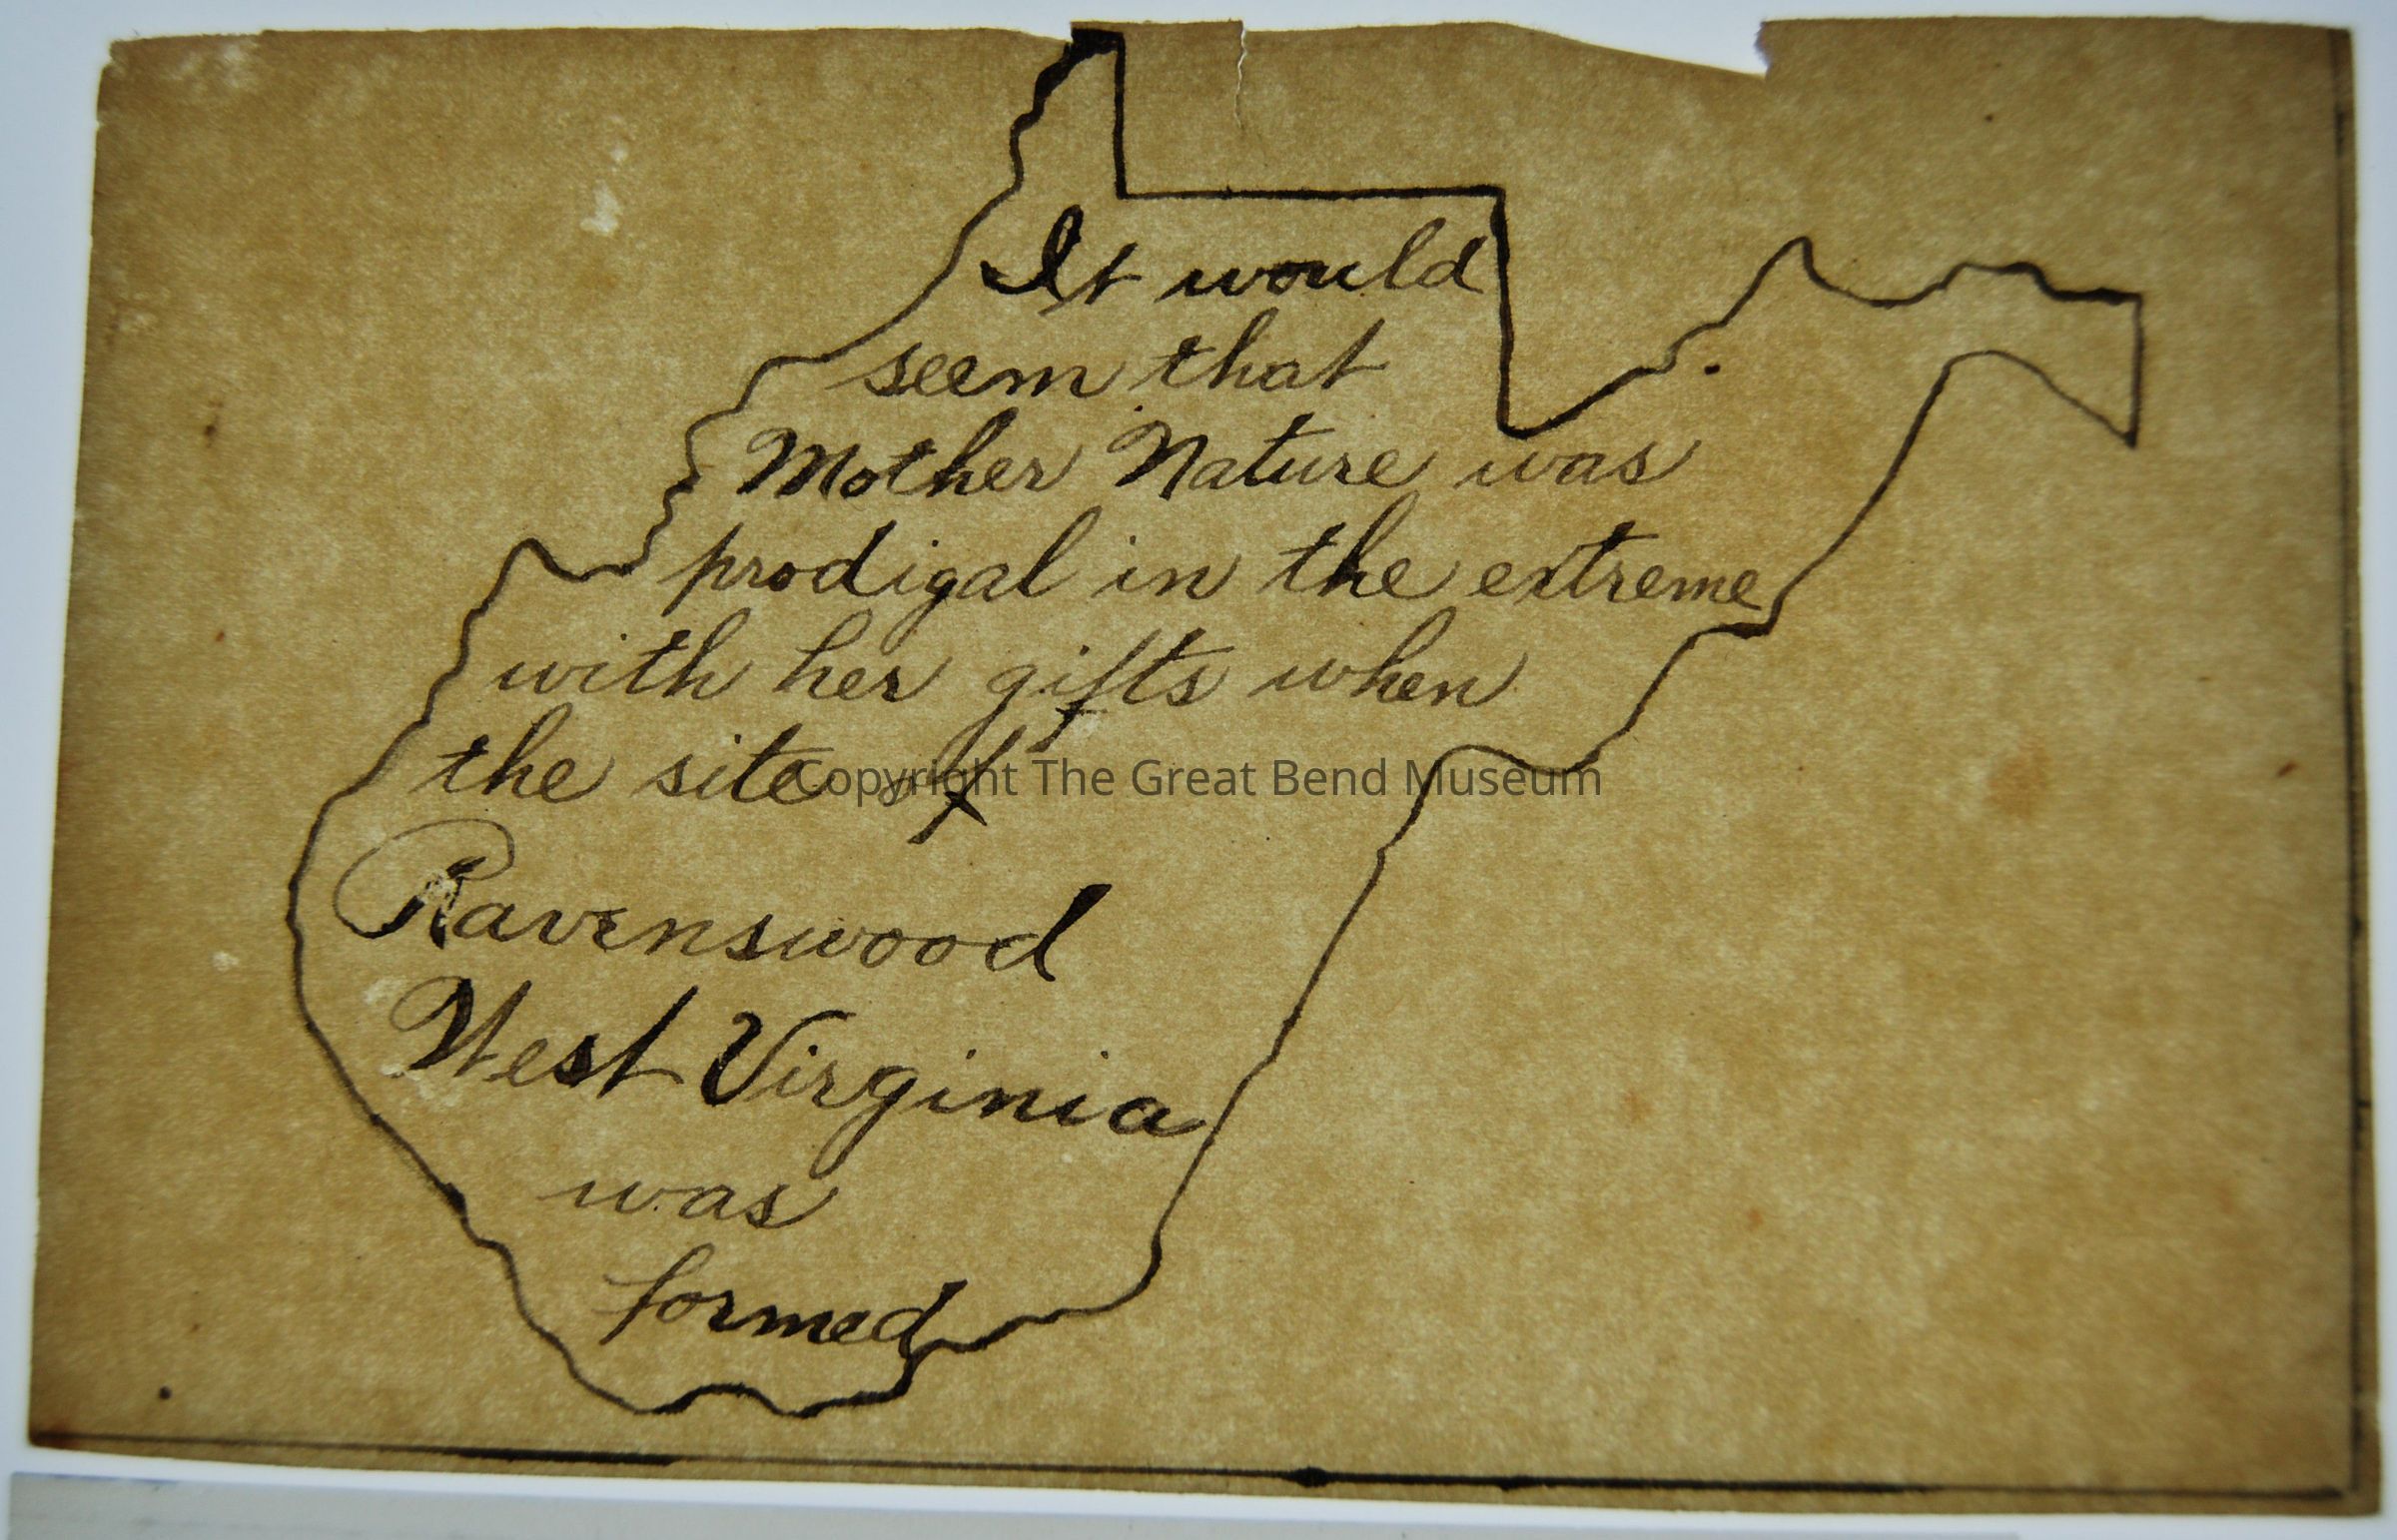 It would
seem that
Mother Nature was
prodigal in the extreme
with her gifts when
the site of
Copyright The Great Bend Museum
Ravenswood
West Virginia
was
formed